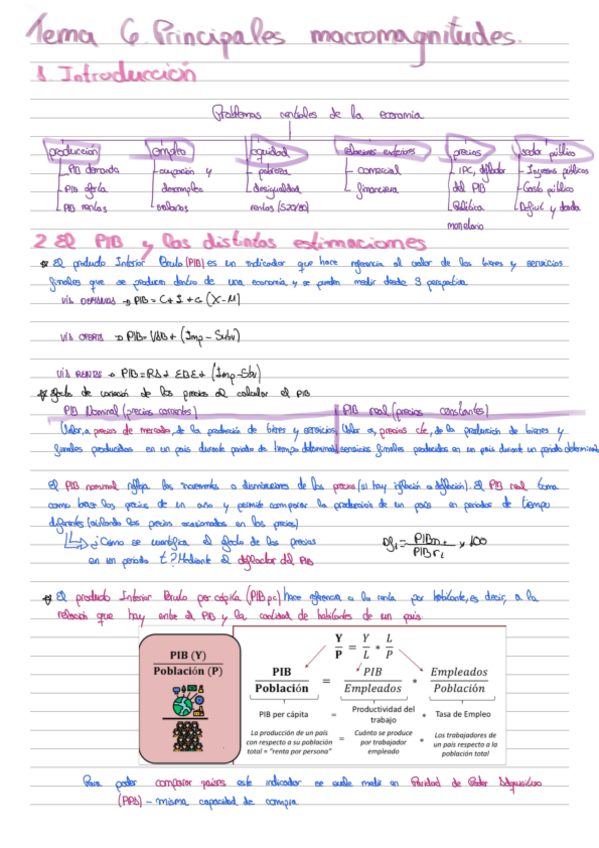 Tema 6. Principales macromagnitudes.
1. Introducción
Problemas centrales de la economía
producción empleo equidad relaciones exteriores precios sector público
PIB demanda ocupación y pobreza comercial IPC, deflactor Ingresos públicos
PIB oferta desempleo desigualdad financiera del PIB Gasto público
PIB rentas salarios rentas (S20/80) Política Déficit y deuda
monetaria
2 El PIB y las distintas estimaciones
El producto Interior Bruto (PIB) es un indicador que hace referencia al valor de los bienes y servicios
finales que se producen dentro de una economía y se pueden medir desde 3 perspectivas
VÍA DEMANDA → PIB = C + I + G (X-M)
VÍA OFERTA → PIB = VAB + (Imp - Subv)
VÍA RENTAS → PIB = RA + EBE + (Imp - Sbv)
Efecto de variación de los precios al calcular el PIB
PIB Nominal (precios corrientes) PIB real (precios constantes)
Valor, a precios de mercado, de la producción de bienes y servicios Valor a, precios cte, de la producción de bienes y
finales producidos en un país durante periodo de tiempo determinado servicios finales producidos en un país durante un periodo determinado
El PIB nominal refleja los incrementos o disminuciones de los precios (si hay inflación o deflación). El PIB real toma
como base los precios de un año y permite comparar la producción de un país en periodos de tiempo
diferentes ( los precios ocasionados en los precios)
¿Cómo se cuantifica el efecto de los precios
en un periodo t? Mediante el deflactor del PIB
Df t = PIBn t / PIBr t x 100
El producto Interior Bruto per cápita (PIB pc) hace referencia a la renta por habitante, es decir, a la
relación que hay entre el PIB y la cantidad de habitantes de un país.
PIB (Y)
Población (P)
Y/P = Y/L * L/P
PIB/Población = PIB/Empleados * Empleados/Población
PIB per cápita = Productividad del trabajo * Tasa de Empleo
La producción de un país con respecto a su población total = "renta por persona" = Cuánto se produce por trabajador empleado * Los trabajadores de un país respecto a la población total
Para poder comparar países este indicador se suele medir en Paridad de Poder Adquisitivo
(PPA) - misma capacidad de compra